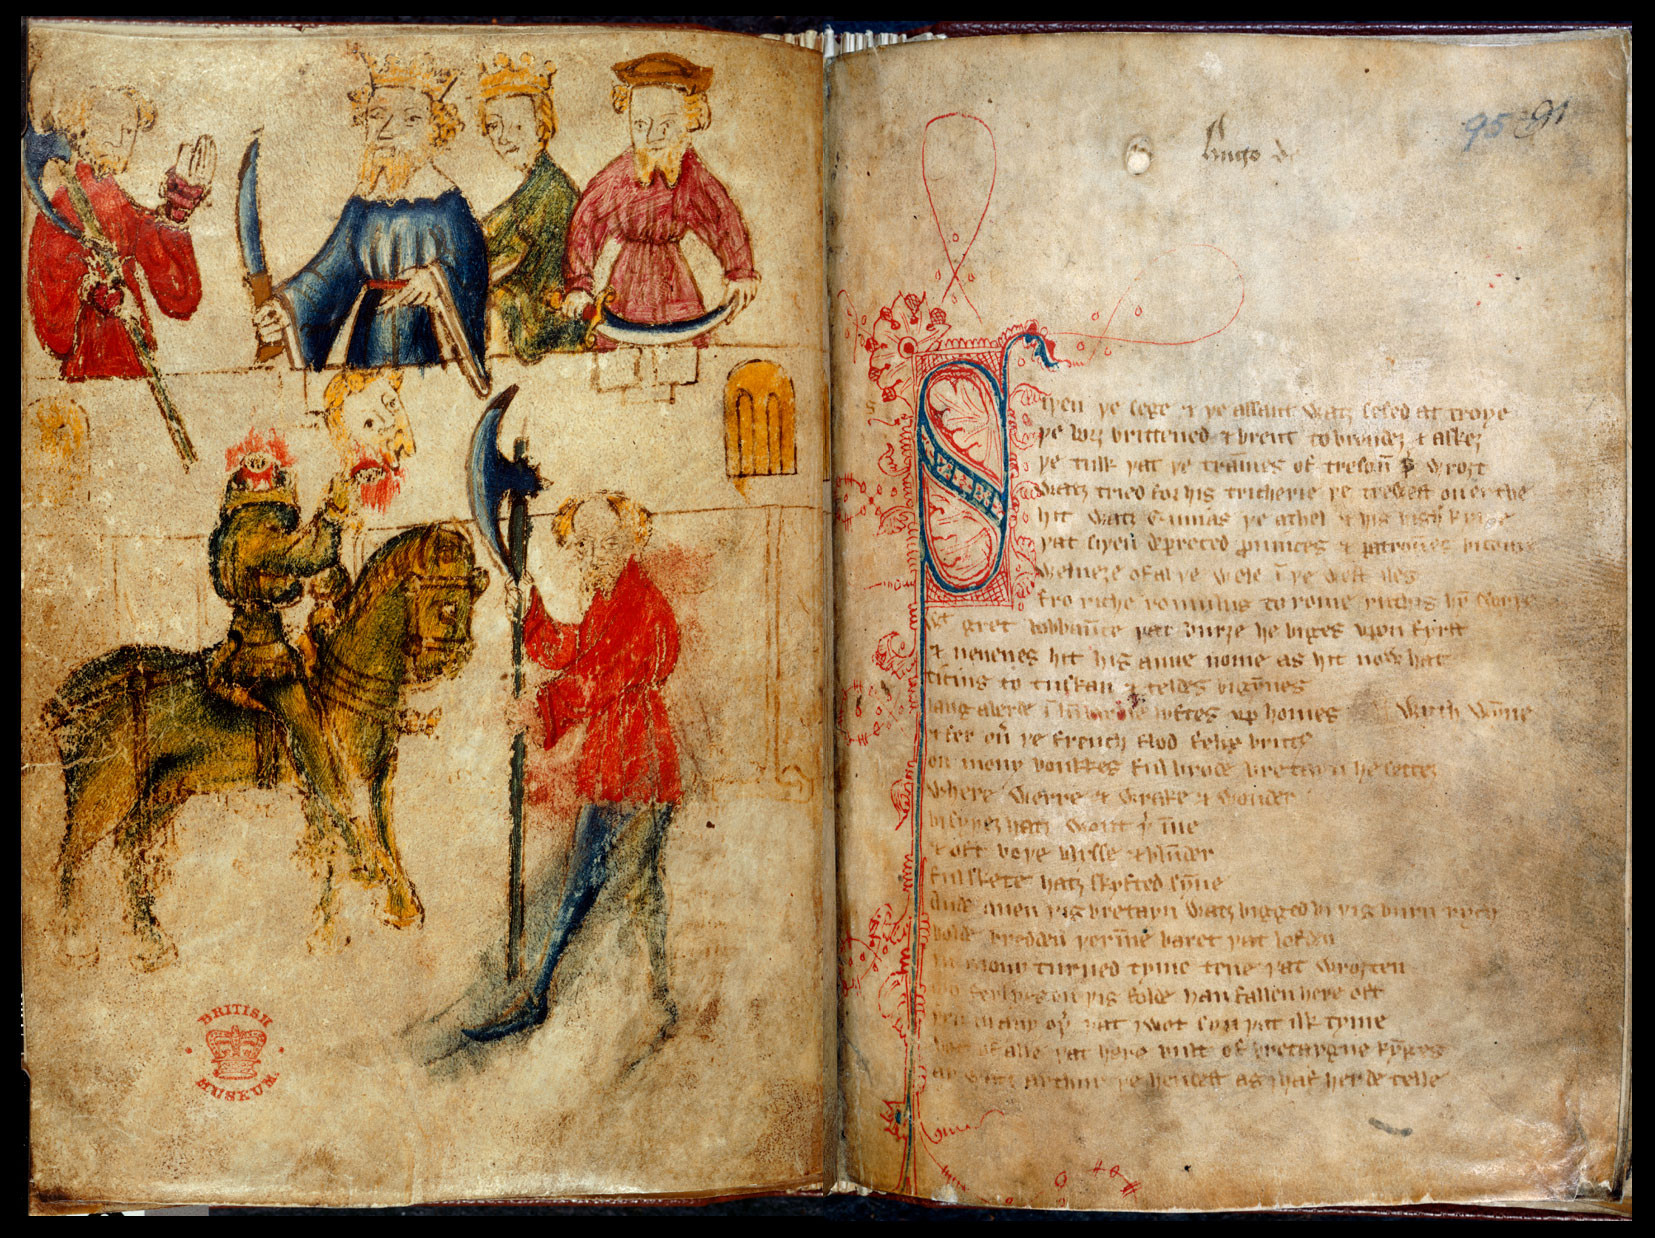 BRITISH
MUSEUM
95 91
Hugo de
Siþen þe sege & þe assaut watȝ sesed at troye
þe borȝ brittened & brent to brondeȝ & askeȝ
þe tulk þat þe trāmes of tresoū þ̄ wroȝt
watȝ tried for his tricherie þe trewest on erthe
hit watȝ Ennias þe athel & his highe kynde
þat siþen depreced prouinces & patrounes bicome
welneȝe of al þe wele ī þe west iles
fro riche romulus to rome ricchis hȳ swyþe
wt gret bobbaūce þat burȝe he biges vpon fyrst
& neuenes hit his aune nome as hit now hat
ticius to tuskan & teldes bigȳnes
langaberde ī lūbardie lyftes vp homes wyth wȳne
& fer oū þe french flod felix brutus
on mony bonkkes ful brode bretayn he setteȝ
where werre & wrake & wonder
bi syþeȝ hatȝ wont þ̄ īne
& oft boþe blysse & blūder
ful skete hatȝ skyfted sȳne
Ande quen þis bretayn watȝ bigged bi þis burn rych
bolde bredden þerīne baret þat lofden
in mony turned tyme tene þat wroȝten
mo ferlyes on þis folde han fallen here oft
þen in any oþ̄ þat I wot syn þat ilk tyme
bot of alle þat here bult of bretaygne kȳges
ay watȝ arthur þe hendest as I haf herde telle